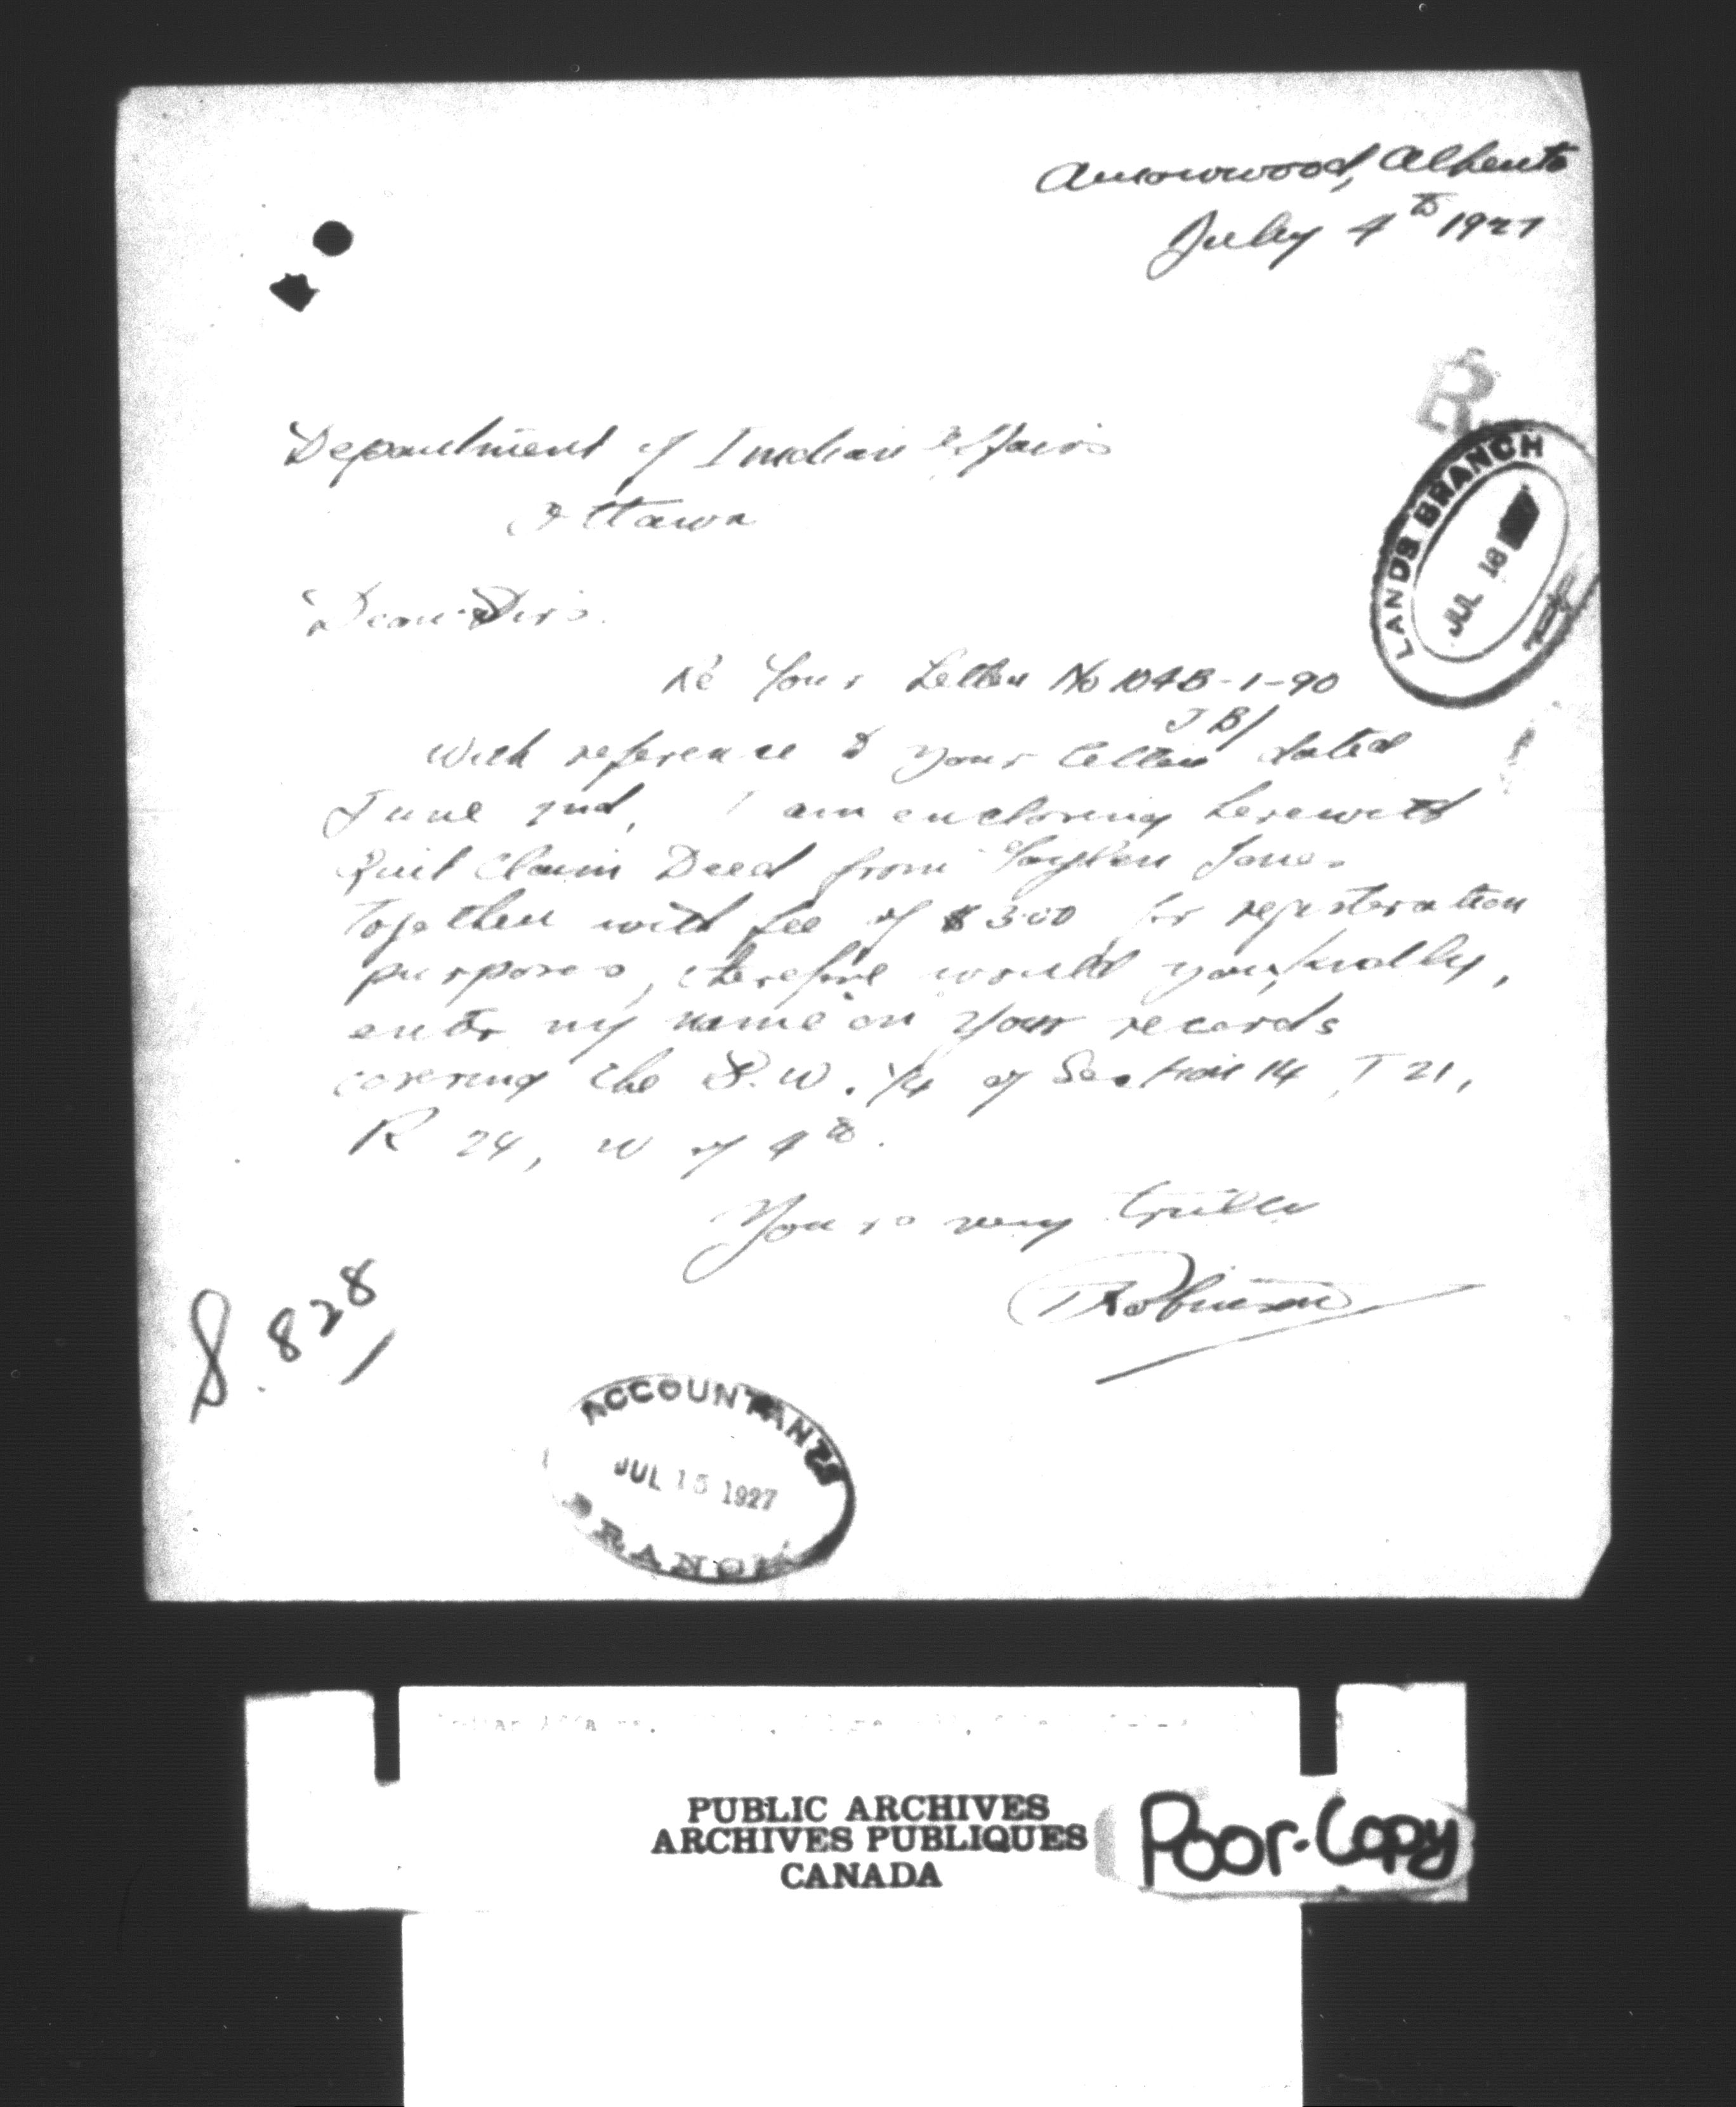 Arrowwood, Alberta
July 4th 1927
Department of Indian Affairs
Ottawa
Dear Sirs.
LANDS BRANCH
JUL 16
Re Your Letter No 104B-1-90
JB/
With reference to your letter dated
June 2nd, I am enclosing herewith
Quit Claim Deed from Jones
together with fee of $3.00 for registeration
purposes, therefore would you, kindly,
enter my name on your records
covering the S.W. 1/4 of Section 14, T 21,
R 24, W of 4th.
Yours very truly
T Robinson
S. 828
ACCOUNTANTS
JUL 15 1927
BRANCH
PUBLIC ARCHIVES
ARCHIVES PUBLIQUES
CANADA
Poor-Copy